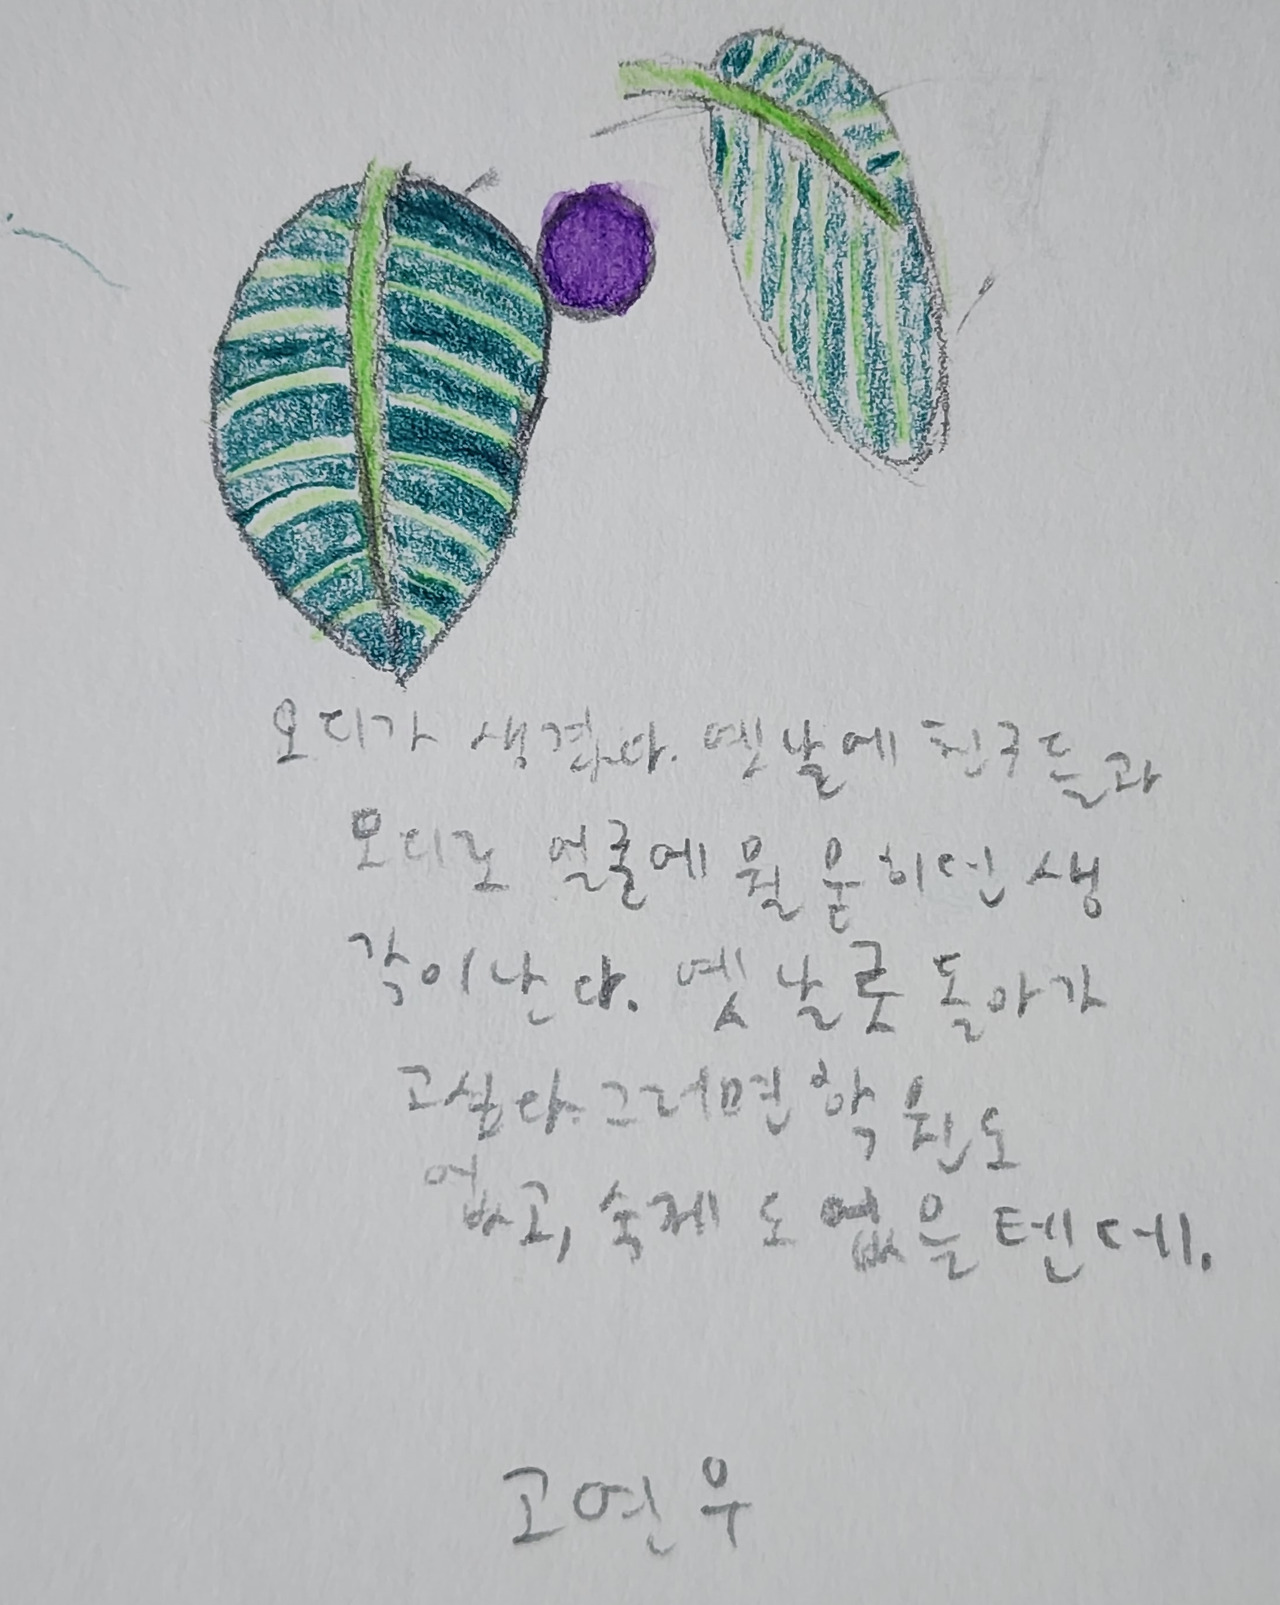 오디가 생겼다. 옛날에 친구들과
오디로 얼굴에 뭘 묻히던 생
각이 난다. 옛날로 돌아가
고싶다. 그러면 학원도
없고, 숙제도 없을텐데.
고연우